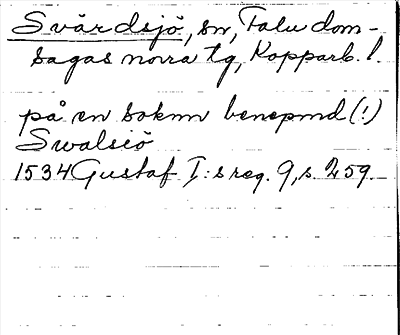 Svärdsjö, sn, Falu dom-
sagas norra tg, Kopparb. l.
på en soknn benepmd (!)
Swalsiö
1534 Gustaf I:s reg. 9, s. 259.